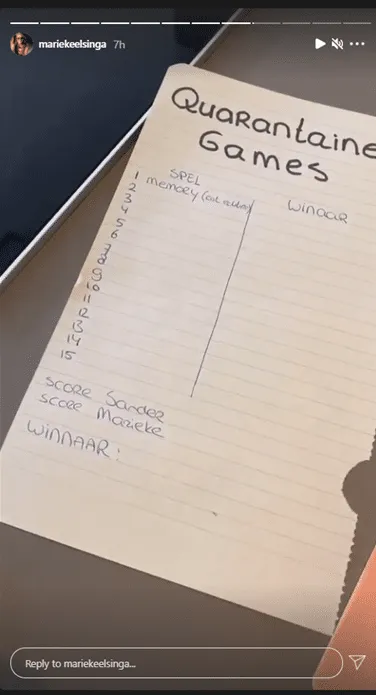 mariekeelsinga 7h
Quarantaine
Games
SPEL
WINAAR
1 memory
2
3
4
5
6
7
8
9
10
11
12
13
14
15
SCORE Sander
SCORE Marieke
WINNAAR:
Reply to mariekeelsinga...